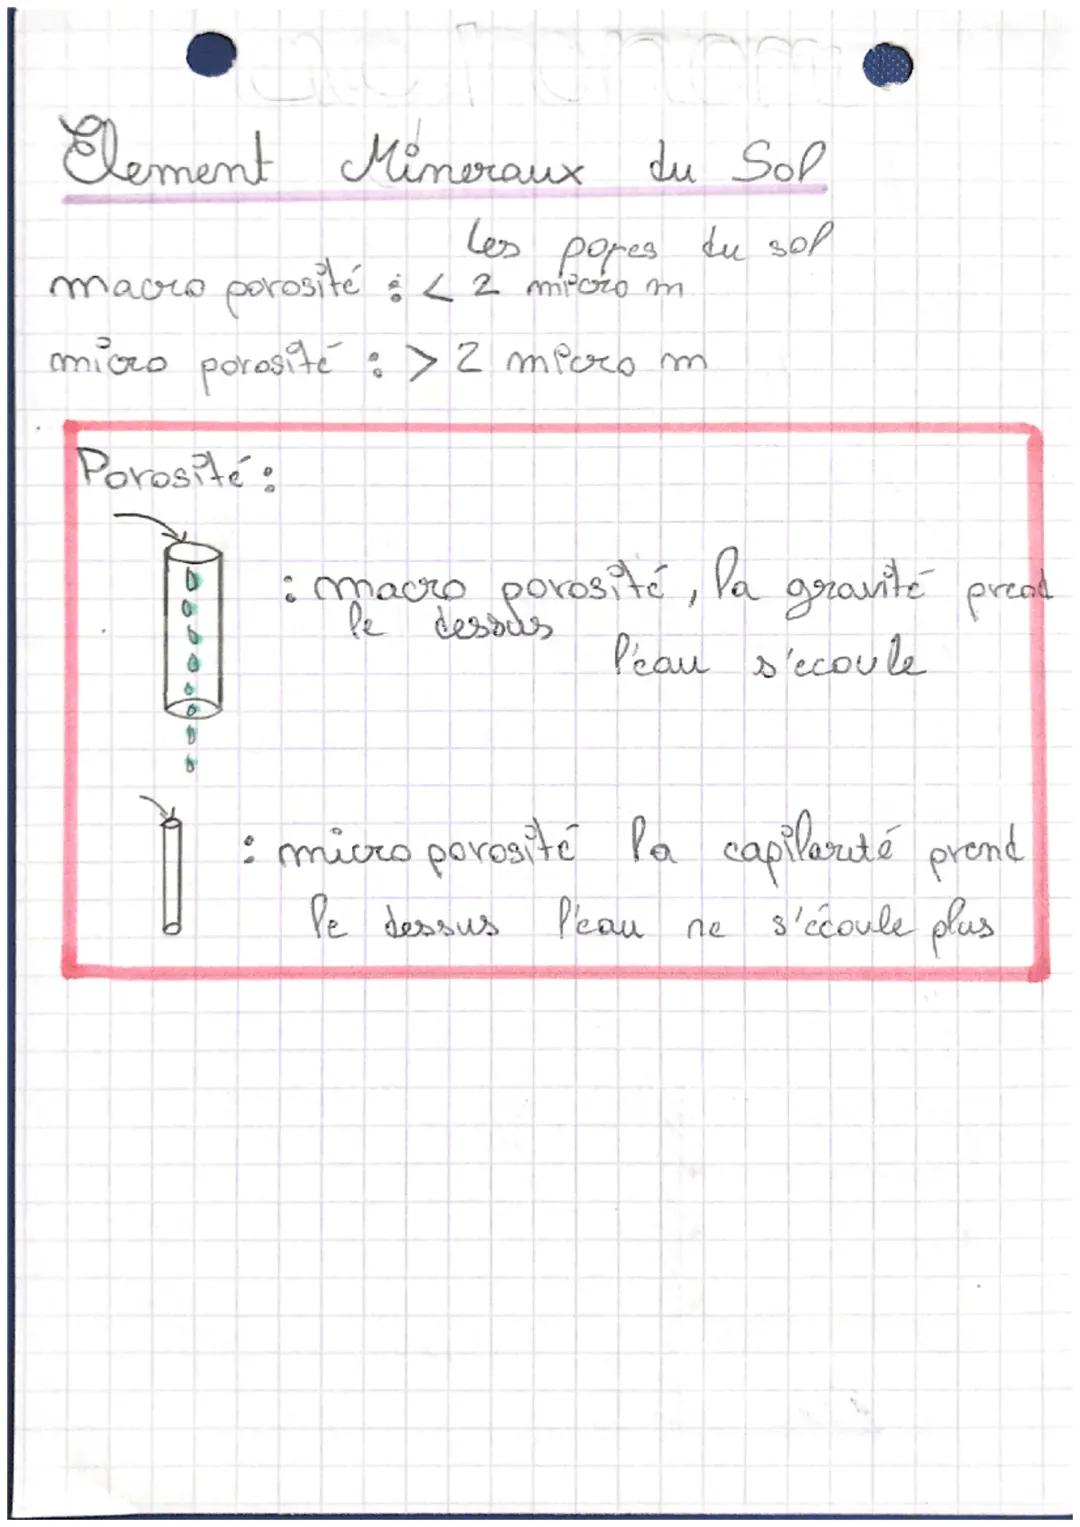 Element Mineraux du Sol
Les pores du sol
macro porosité : < 2 micro m
micro porosité : > 2 micro m
Porosité :
: macro porosité, la gravité prend
le dessus
l'eau s'ecoule
: micro porosité la capilarité prend
le dessus l'eau ne s'écoule plus